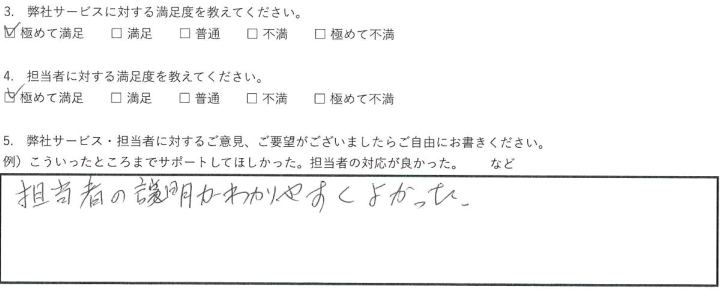 3. 弊社サービスに対する満足度を教えてください。
☑ 極めて満足 □ 満足 □ 普通 □ 不満 □ 極めて不満
4. 担当者に対する満足度を教えてください。
☑ 極めて満足 □ 満足 □ 普通 □ 不満 □ 極めて不満
5. 弊社サービス・担当者に対するご意見、ご要望がございましたらご自由にお書きください。
例）こういったところまでサポートしてほしかった。担当者の対応が良かった。 など
担当者の説明がわかりやすくよかった。